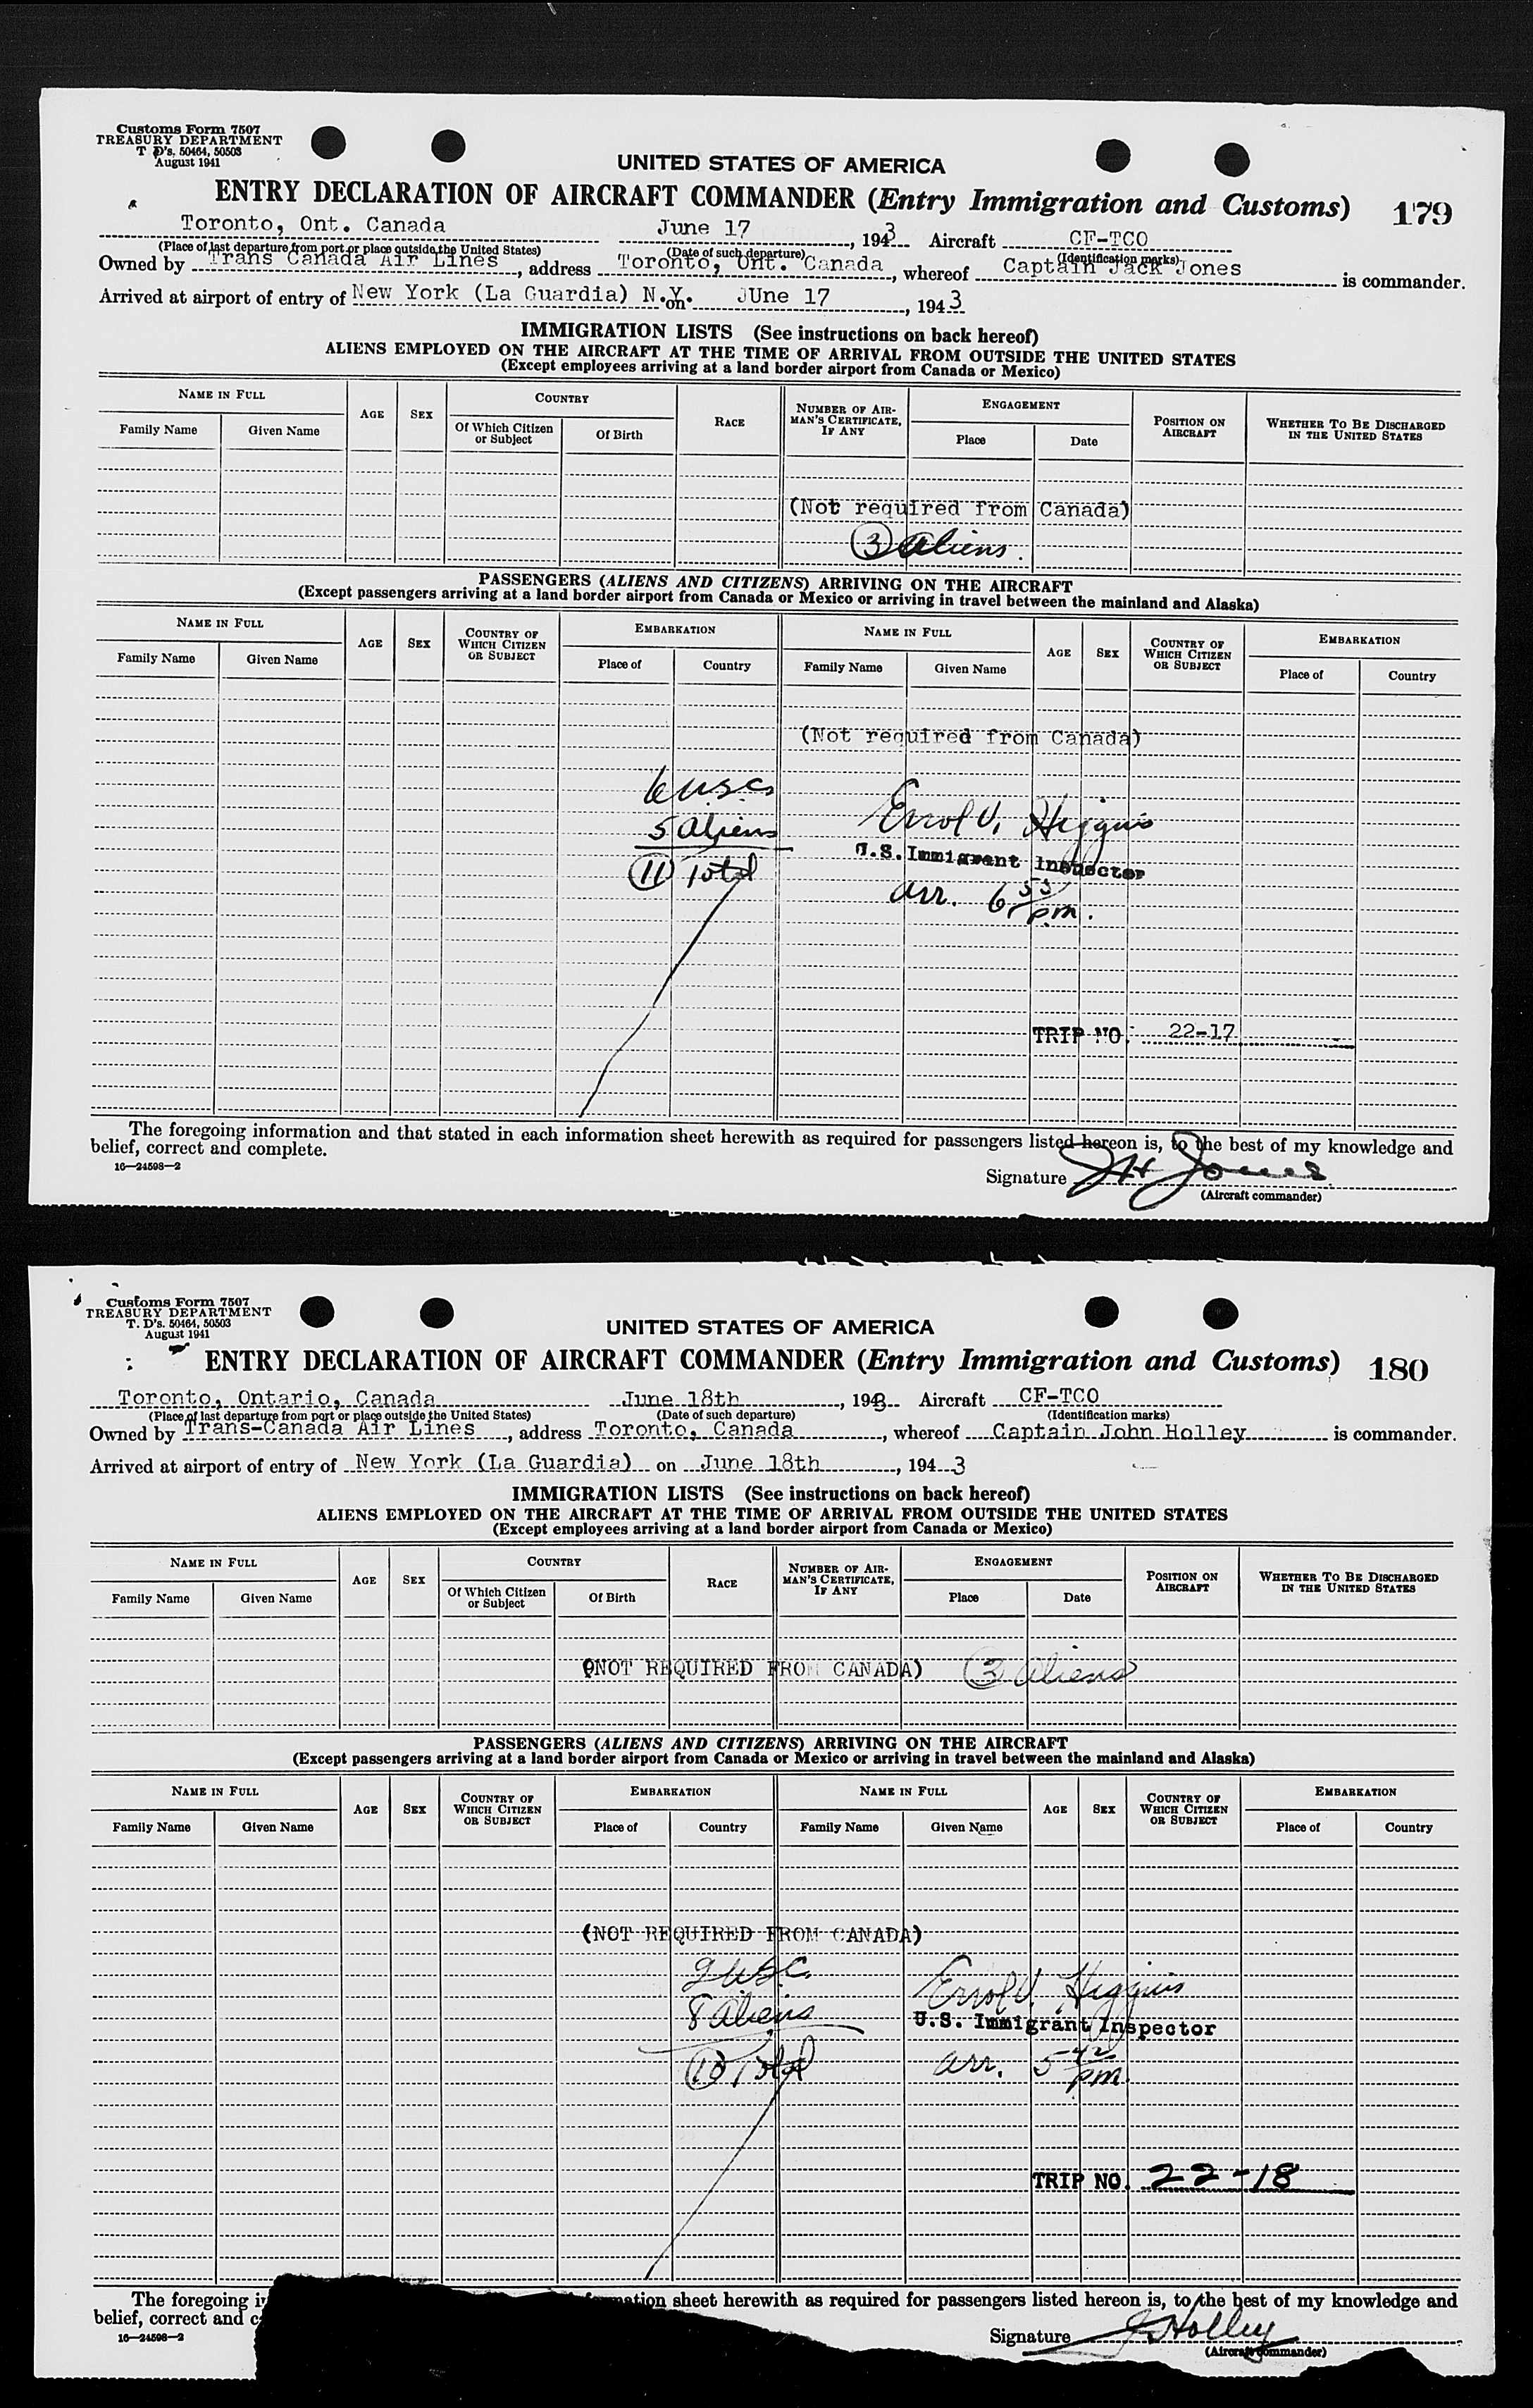 Customs Form 7507
TREASURY DEPARTMENT
T. D's. 50464, 50503
August 1941
UNITED STATES OF AMERICA
ENTRY DECLARATION OF AIRCRAFT COMMANDER (Entry Immigration and Customs) 179
Toronto, Ont. Canada June 17, 1943 Aircraft CF-TCO
(Place of last departure from port or place outside the United States) (Date of such departure) (Identification marks)
Owned by Trans Canada Air Lines, address Toronto, Ont. Canada, whereof Captain Jack Jones is commander.
Arrived at airport of entry of New York (La Guardia) N.Y. on JUne 17, 1943
IMMIGRATION LISTS (See instructions on back hereof)
ALIENS EMPLOYED ON THE AIRCRAFT AT THE TIME OF ARRIVAL FROM OUTSIDE THE UNITED STATES
(Except employees arriving at a land border airport from Canada or Mexico)
NAME IN FULL AGE SEX COUNTRY RACE NUMBER OF AIRMAN'S CERTIFICATE, IF ANY ENGAGEMENT POSITION ON AIRCRAFT WHETHER TO BE DISCHARGED IN THE UNITED STATES
Family Name Given Name Of Which Citizen or Subject Of Birth Place Date
(Not required from Canada)
3 aliens.
PASSENGERS (ALIENS AND CITIZENS) ARRIVING ON THE AIRCRAFT
(Except passengers arriving at a land border airport from Canada or Mexico or arriving in travel between the mainland and Alaska)
NAME IN FULL AGE SEX COUNTRY OF WHICH CITIZEN OR SUBJECT EMBARKATION NAME IN FULL AGE SEX COUNTRY OF WHICH CITIZEN OR SUBJECT EMBARKATION
Family Name Given Name Place of Country Family Name Given Name Place of Country
(Not required from Canada)
6 USCs
5 aliens Errol V. Higgins
11 Total U.S. Immigrant Inspector
arr. 6 53 pm.
TRIP NO. 22-17
The foregoing information and that stated in each information sheet herewith as required for passengers listed hereon is, to the best of my knowledge and
belief, correct and complete.
16—24598—2
Signature JH Jones
(Aircraft commander)
Customs Form 7507
TREASURY DEPARTMENT
T. D's. 50464, 50503
August 1941
UNITED STATES OF AMERICA
ENTRY DECLARATION OF AIRCRAFT COMMANDER (Entry Immigration and Customs) 180
Toronto, Ontario, Canada June 18th, 1943 Aircraft CF-TCO
(Place of last departure from port or place outside the United States) (Date of such departure) (Identification marks)
Owned by Trans-Canada Air Lines, address Toronto, Canada, whereof Captain John Holley is commander.
Arrived at airport of entry of New York (La Guardia) on June 18th, 1943
IMMIGRATION LISTS (See instructions on back hereof)
ALIENS EMPLOYED ON THE AIRCRAFT AT THE TIME OF ARRIVAL FROM OUTSIDE THE UNITED STATES
(Except employees arriving at a land border airport from Canada or Mexico)
NAME IN FULL AGE SEX COUNTRY RACE NUMBER OF AIRMAN'S CERTIFICATE, IF ANY ENGAGEMENT POSITION ON AIRCRAFT WHETHER TO BE DISCHARGED IN THE UNITED STATES
Family Name Given Name Of Which Citizen or Subject Of Birth Place Date
(NOT REQUIRED FROM CANADA) 3 aliens
PASSENGERS (ALIENS AND CITIZENS) ARRIVING ON THE AIRCRAFT
(Except passengers arriving at a land border airport from Canada or Mexico or arriving in travel between the mainland and Alaska)
NAME IN FULL AGE SEX COUNTRY OF WHICH CITIZEN OR SUBJECT EMBARKATION NAME IN FULL AGE SEX COUNTRY OF WHICH CITIZEN OR SUBJECT EMBARKATION
Family Name Given Name Place of Country Family Name Given Name Place of Country
(NOT REQUIRED FROM CANADA)
2 USC. Errol V. Higgins
8 aliens U.S. Immigrant Inspector
10 Total arr. 5 42 pm.
TRIP NO. 22-18
The foregoing in mation sheet herewith as required for passengers listed hereon is, to the best of my knowledge and
belief, correct and c
16—24598—2
Signature J Holley
(Aircraft commander)